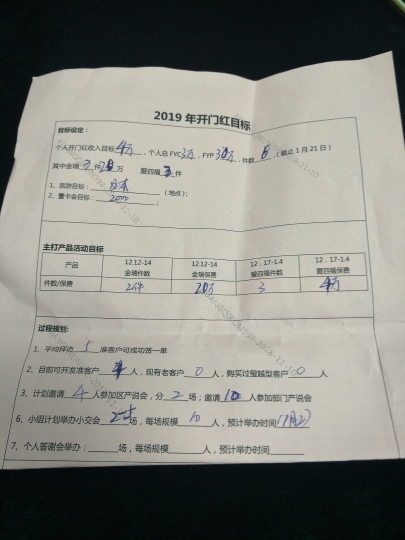 2019 年开门红目标
目标设定：
个人开门红收入目标4万，个人总 FYC3万，FYP 30万，件数 6（截止 1 月 21 日）
其中金瑞 件 万 爱四福 3 件
1、旅游目标：日本（地点）；
2、董卡会目标：2000；
主打产品活动目标
产品 12.12-14 金瑞件数 12.12-14 金瑞保费 12．17-1.4 爱四福件数 12．17-1.4 爱四福保费
件数/保费 2件 20万 3 4万
过程规划：
1、平均拜访 5 准客户可成功签一单
2、目前可开发准客户 人，现有老客户 0 人，购买过玺越型客户 0 人
3、计划邀请 4 人参加区产说会，分 2 场；邀请 10 人参加部门产说会
6、小组计划举办小交会 场，每场规模 10 人，预计举办时间
7、个人答谢会举办： 场，每场规模 人，预计举办时间